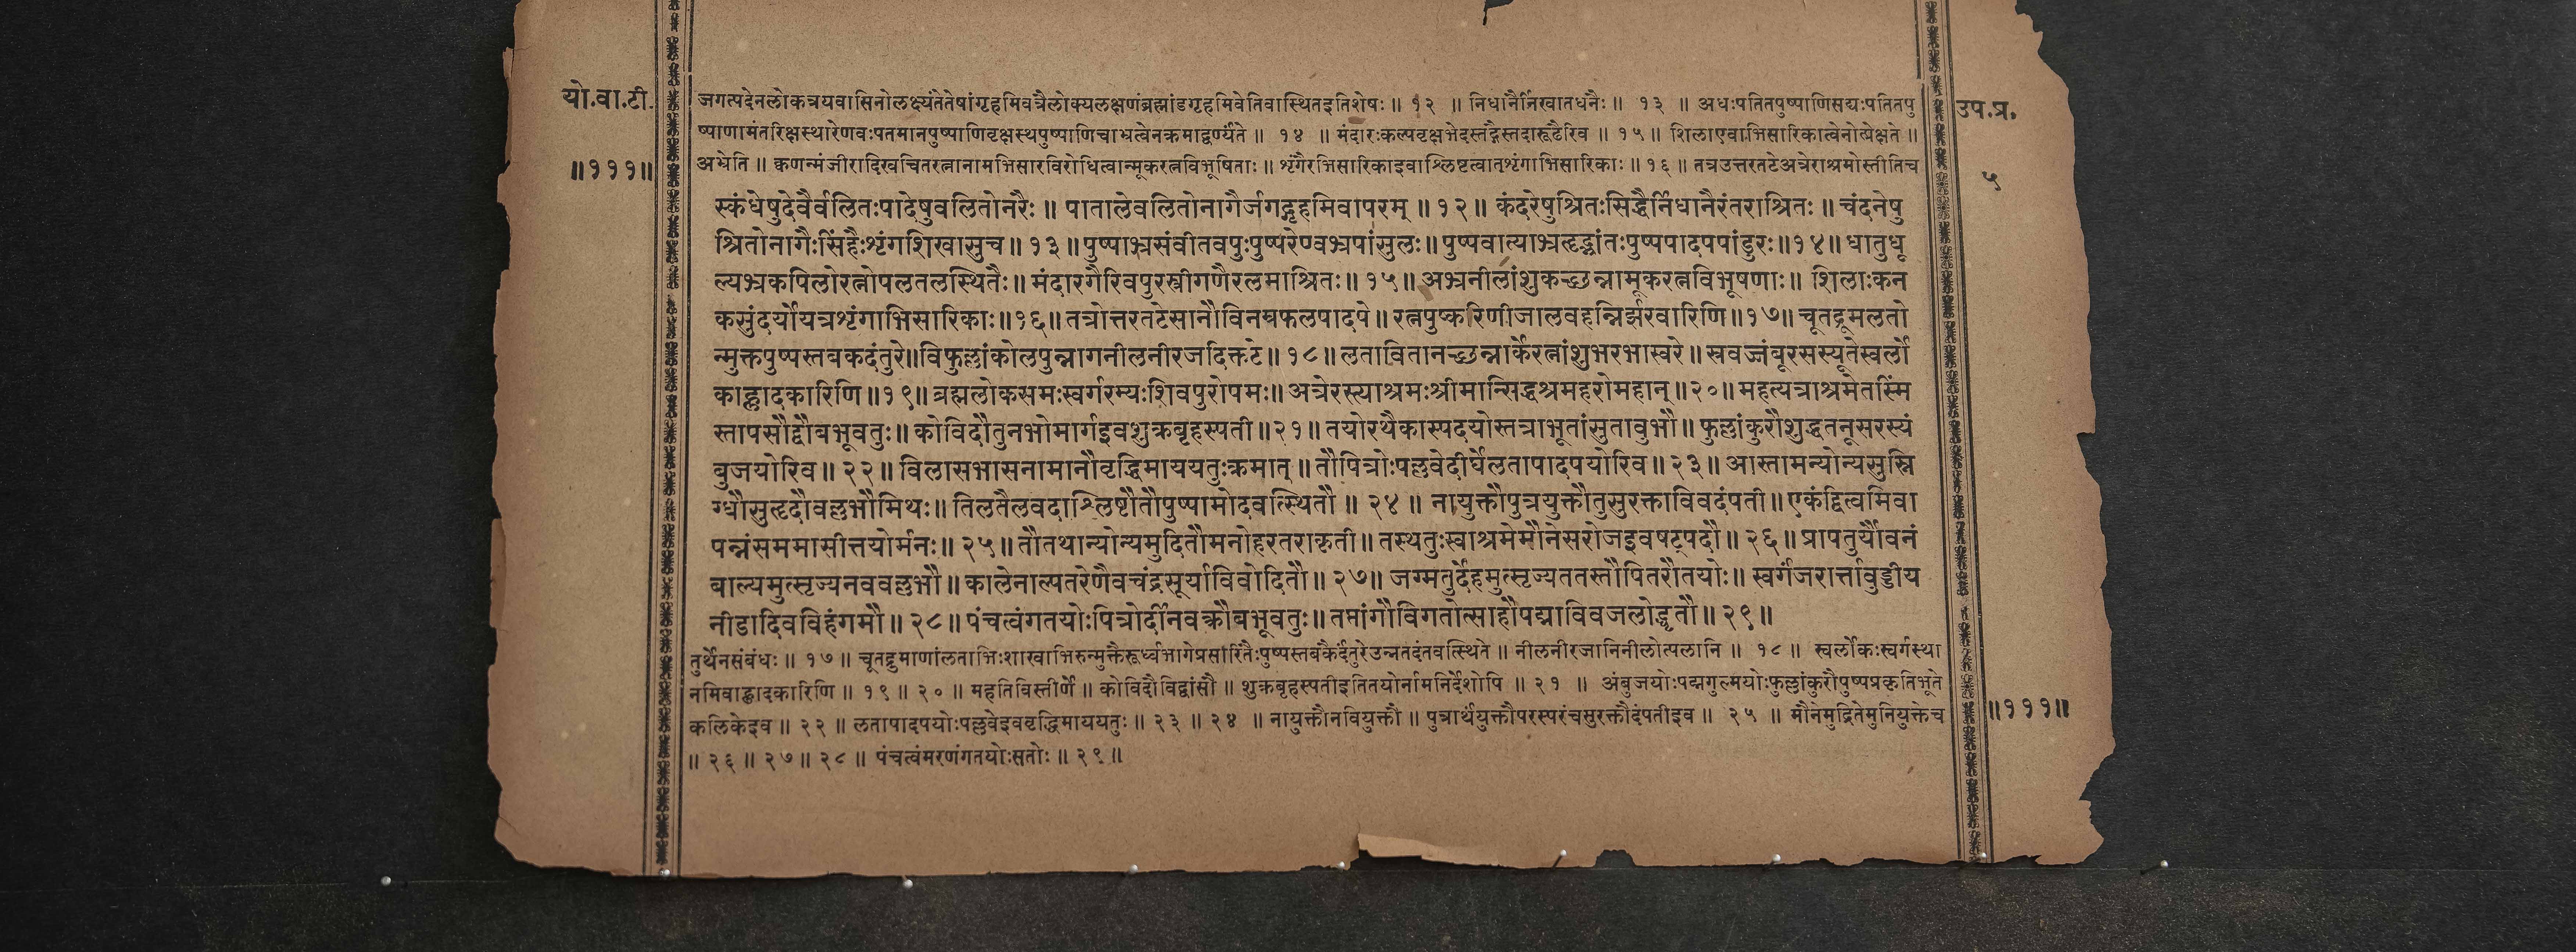 यो.वा.टी.
॥१११॥
उप.प्र.
५
जगत्पदेनलोकत्रयवासिनोलक्ष्यंतेतेषांगृहमिवत्रैलोक्यलक्षणंब्रह्मांडगृहमिवेतिवास्थितइतिशेषः ॥ १२ ॥ निधानैर्निखातधनैः ॥ १३ ॥ अधःपतितपुष्पाणिसद्यःपतितपु
ष्पाणामंतरिक्षस्थारेणवःपतमानपुष्पाणिवृक्षस्थपुष्पाणिचाभ्रत्वेनक्रमाद्वर्ण्यंते ॥ १४ ॥ मंदारःकल्पवृक्षभेदस्तद्गैस्तदारूढैरिव ॥ १५ ॥ शिलाएवाभिसारिकात्वेनोत्प्रेक्षते ॥
अभ्रेति ॥ क्वणन्मंजीरादिखचितरत्नानामभिसारविरोधित्वान्मूकरत्नविभूषिताः ॥ शृंगैरभिसारिकाइवाश्लिष्टत्वात्शृंगाभिसारिकाः ॥ १६ ॥ तत्रउत्तरतटेअत्रेराश्रमोस्तीतिच
स्कंधेषुदेवैर्वलितःपादेषुवलितोनरैः ॥ पातालेवलितोनागैर्जगद्गृहमिवापरम् ॥ १२ ॥ कंदरेषुश्रितःसिद्धैर्निधानैरंतराश्रितः ॥ चंदनेषु
श्रितोनागैःसिंहैःशृंगशिखासुच ॥ १३ ॥ पुष्पाभ्रसंवीतवपुःपुष्परेण्वभ्रपांसुलः ॥ पुष्पवात्याभ्रत्दृद्भ्रांतःपुष्पपादपपांडुरः ॥१४॥ धातुधू
ल्यभ्रकपिलोरत्नोपलतलस्थितैः ॥ मंदारगैरिवपुरस्त्रीगणैरलमाश्रितः ॥ १५ ॥ अभ्रनीलांशुकच्छन्नामूकरत्नविभूषणाः ॥ शिलाःकन
कसुंदर्योयत्रशृंगाभिसारिकाः ॥१६॥ तत्रोत्तरतटेसानौविनम्रफलपादपे ॥ रत्नपुष्करिणीजालवहन्निर्झरवारिणि ॥१७॥ चूतद्रुमलतो
न्मुक्तपुष्पस्तबकदंतुरे॥विफुल्लांकोलपुन्नागनीलनीरजदिक्तटे ॥ १८ ॥ लतावितानच्छन्नार्केरत्नांशुभरभास्वरे ॥ स्रवज्जंबूरसस्यूतेस्वर्लो
काह्लादकारिणि ॥१९॥ ब्रह्मलोकसमःस्वर्गरम्यःशिवपुरोपमः ॥ अत्रेरस्त्याश्रमःश्रीमान्सिद्धश्रमहरोमहान् ॥२०॥ महत्यत्राश्रमेतस्मिं
स्तापसौद्वौबभूवतुः ॥ कोविदौतुनभोमार्गइवशुक्रबृहस्पती ॥२१॥ तयोरथैकास्पदयोस्तत्राभूतांसुतावुभौ ॥ फुल्लांकुरौशुद्धतनूसरस्यं
बुजयोरिव ॥ २२ ॥ विलासभासनामानौवृद्धिमाययतुःक्रमात् ॥ तौपित्रोःपल्लवेदीर्घेलतापादपयोरिव ॥ २३ ॥ आस्तामन्योन्यसुस्नि
ग्धौसुत्दृदौवल्लभौमिथः ॥ तिलतैलवदाश्लिष्टौतौपुष्पामोदवत्स्थितौ ॥ २४ ॥ नायुक्तौपुत्रयुक्तौतुसुरक्ताविवदंपती ॥ एकंद्वित्वमिवा
पन्नंसममासीत्तयोर्मनः ॥ २५ ॥ तौतथान्योन्यमुदितौमनोहरतराकृती ॥ तस्थतुःस्वाश्रमेमौनेसरोजइवषट्पदौ ॥ २६ ॥ प्रापतुर्यौवनं
बाल्यमुत्सृज्यनववल्लभौ ॥ कालेनाल्पतरेणैवचंद्रसूर्याविवोदितौ ॥ २७ ॥ जग्मतुर्देहमुत्सृज्यततस्तौपितरौतयोः ॥ स्वर्गंजरार्त्तावुड्डीय
नीडादिवविहंगमौ ॥ २८ ॥ पंचत्वंगतयोःपित्रोर्दीनवक्रौबभूवतुः ॥ तप्तांगौविगतोत्साहौपद्माविवजलोद्धृतौ ॥ २९ ॥
तुर्थेनसंबंधः ॥ १७ ॥ चूतद्रुमाणांलताभिःशाखाभिरुन्मुक्तैरूर्ध्वभागेप्रसारितैःपुष्पस्तबकैर्दंतुरेउन्नतदंतवत्स्थिते ॥ नीलनीरजानिनीलोत्पलानि ॥ १८ ॥ स्वर्लोकःस्वर्गस्था
नमिवाह्लादकारिणि ॥ १९ ॥ २० ॥ महतिविस्तीर्णे ॥ कोविदौविद्वांसौ ॥ शुक्रबृहस्पतीइतितयोर्नामनिर्देशोपि ॥ २१ ॥ अंबुजयोःपद्मगुल्मयोःफुल्लांकुरौपुष्पप्रकृतिभूते
कलिकेइव ॥ २२ ॥ लतापादपयोःपल्लवेइववृद्धिमाययतुः ॥ २३ ॥ २४ ॥ नायुक्तौनवियुक्तौ ॥ पुत्रार्थयुक्तौपरस्परंचसुरक्तौदंपतीइव ॥ २५ ॥ मौनेमुद्रितेमुनियुक्तेच
॥ २६ ॥ २७ ॥ २८ ॥ पंचत्वंमरणंगतयोःसतोः ॥ २९ ॥
॥१११॥